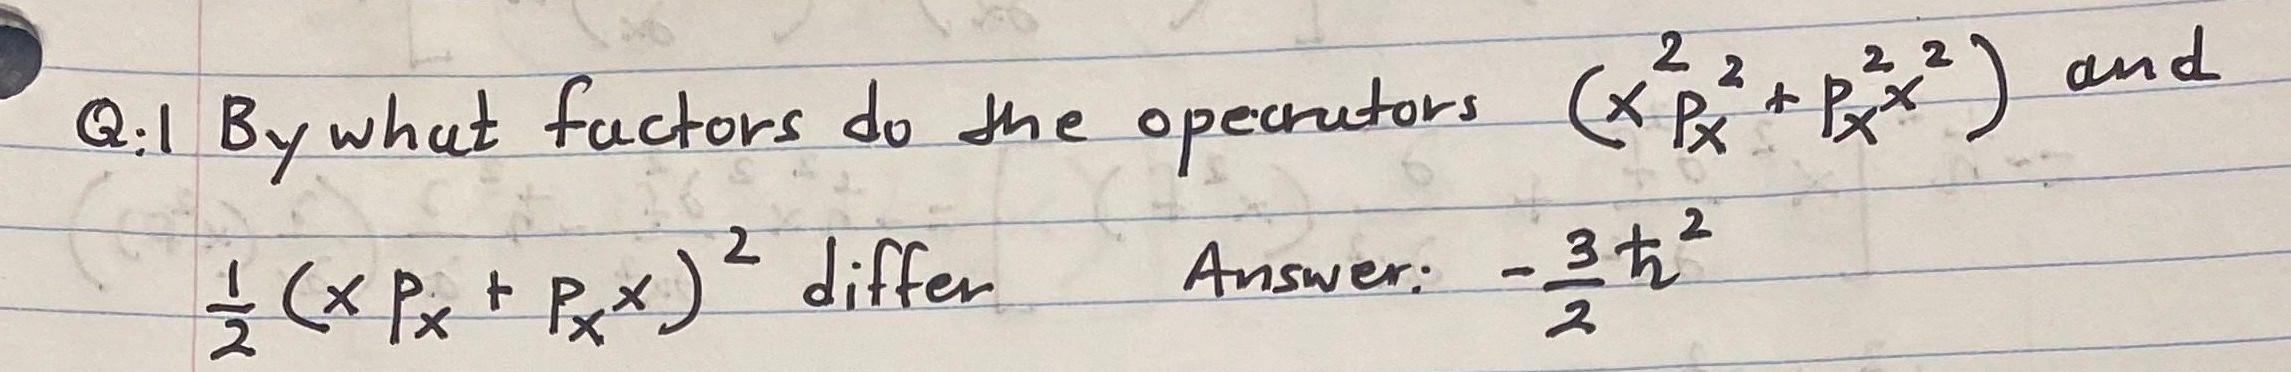 Q:1 By what factors do the operators (x²pₓ² + pₓ²x²) and
½ (x pₓ + pₓ x)² differ Answer: -3/2 ħ²